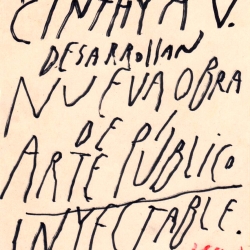 CINTHYA V.
DESARROLLAN
NUEVA OBRA
DE
ARTE PÚBLICO
INYECTABLE.